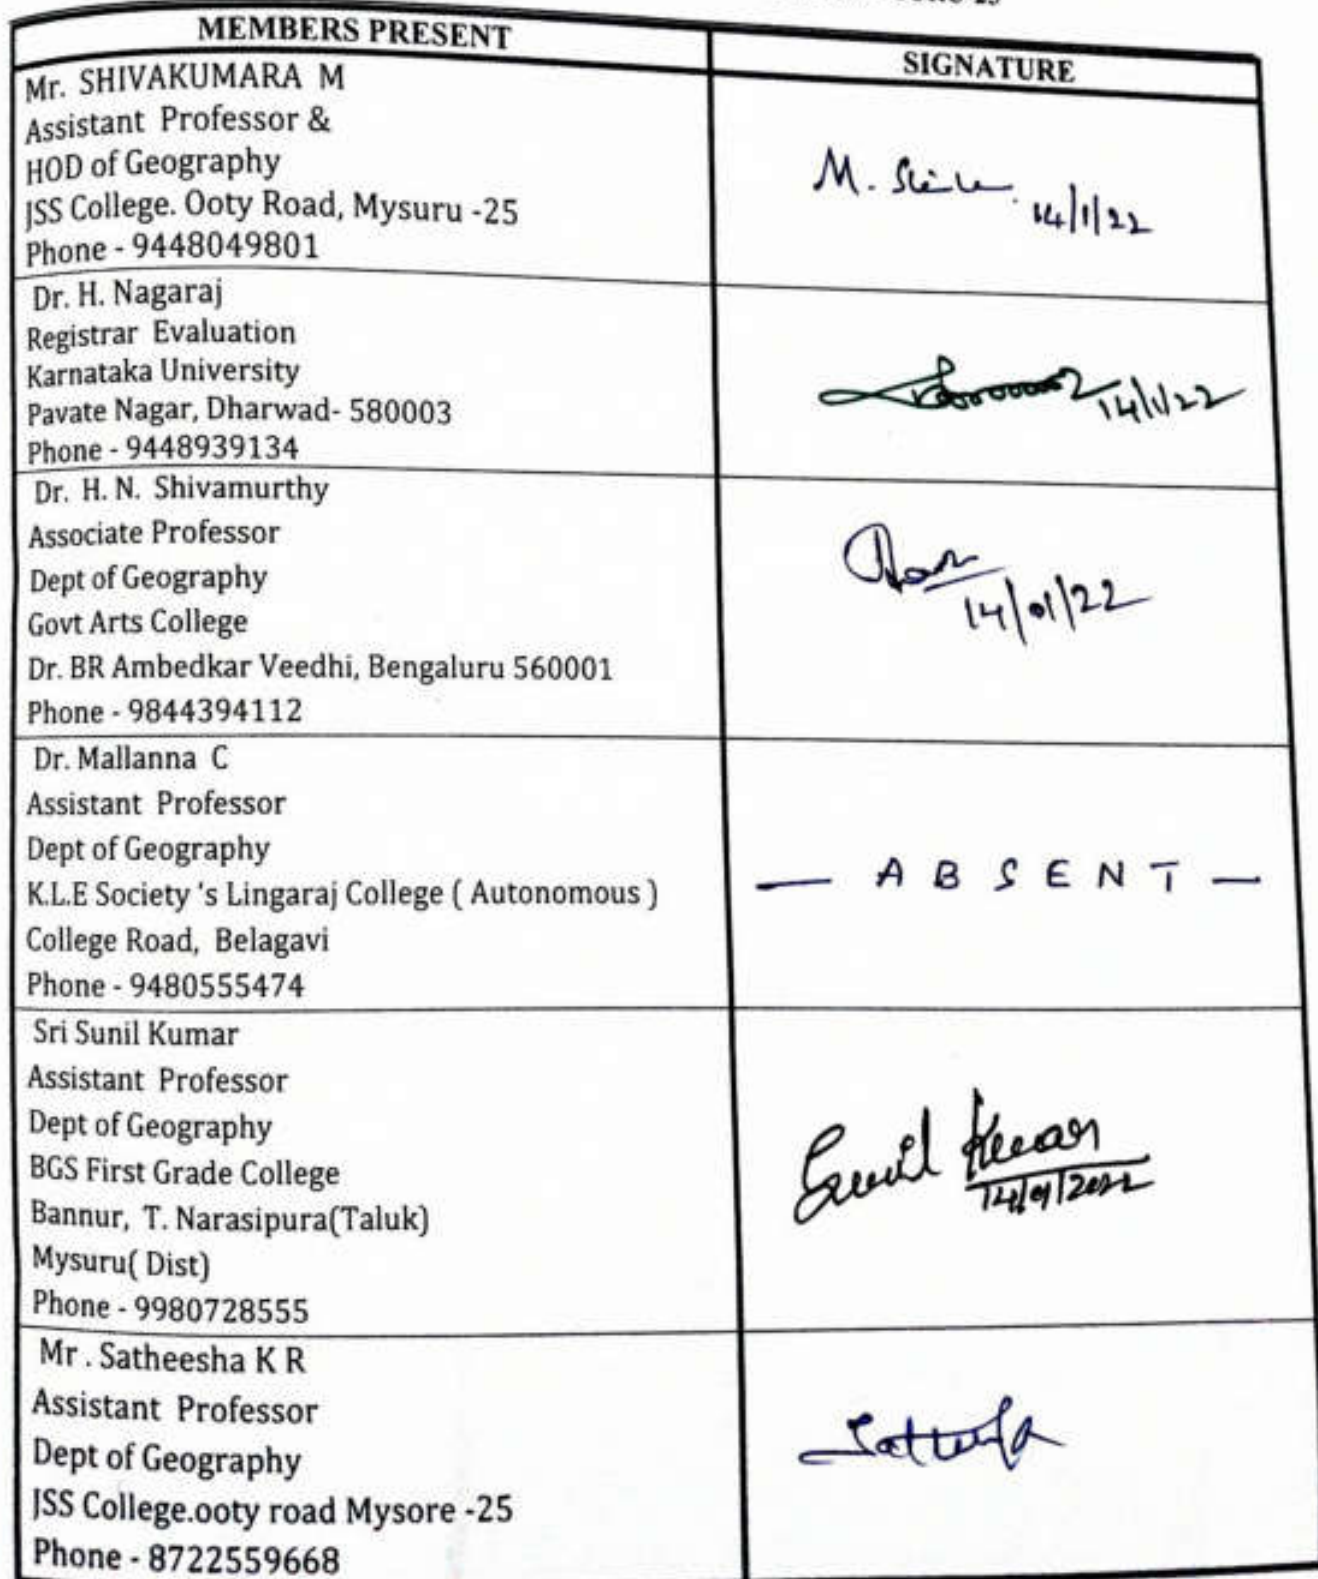 MEMBERS PRESENT
SIGNATURE
Mr. SHIVAKUMARA M
Assistant Professor &
HOD of Geography
JSS College. Ooty Road, Mysuru -25
Phone - 9448049801
M.
14/1/22
Dr. H. Nagaraj
Registrar Evaluation
Karnataka University
Pavate Nagar, Dharwad- 580003
Phone - 9448939134
14/1/22
Dr. H. N. Shivamurthy
Associate Professor
Dept of Geography
Govt Arts College
Dr. BR Ambedkar Veedhi, Bengaluru 560001
Phone - 9844394112
14/01/22
Dr. Mallanna C
Assistant Professor
Dept of Geography
K.L.E Society 's Lingaraj College ( Autonomous )
College Road, Belagavi
Phone - 9480555474
— A B S E N T —
Sri Sunil Kumar
Assistant Professor
Dept of Geography
BGS First Grade College
Bannur, T. Narasipura(Taluk)
Mysuru( Dist)
Phone - 9980728555
Sunil Kumar
14/01/2022
Mr . Satheesha K R
Assistant Professor
Dept of Geography
JSS College.ooty road Mysore -25
Phone - 8722559668